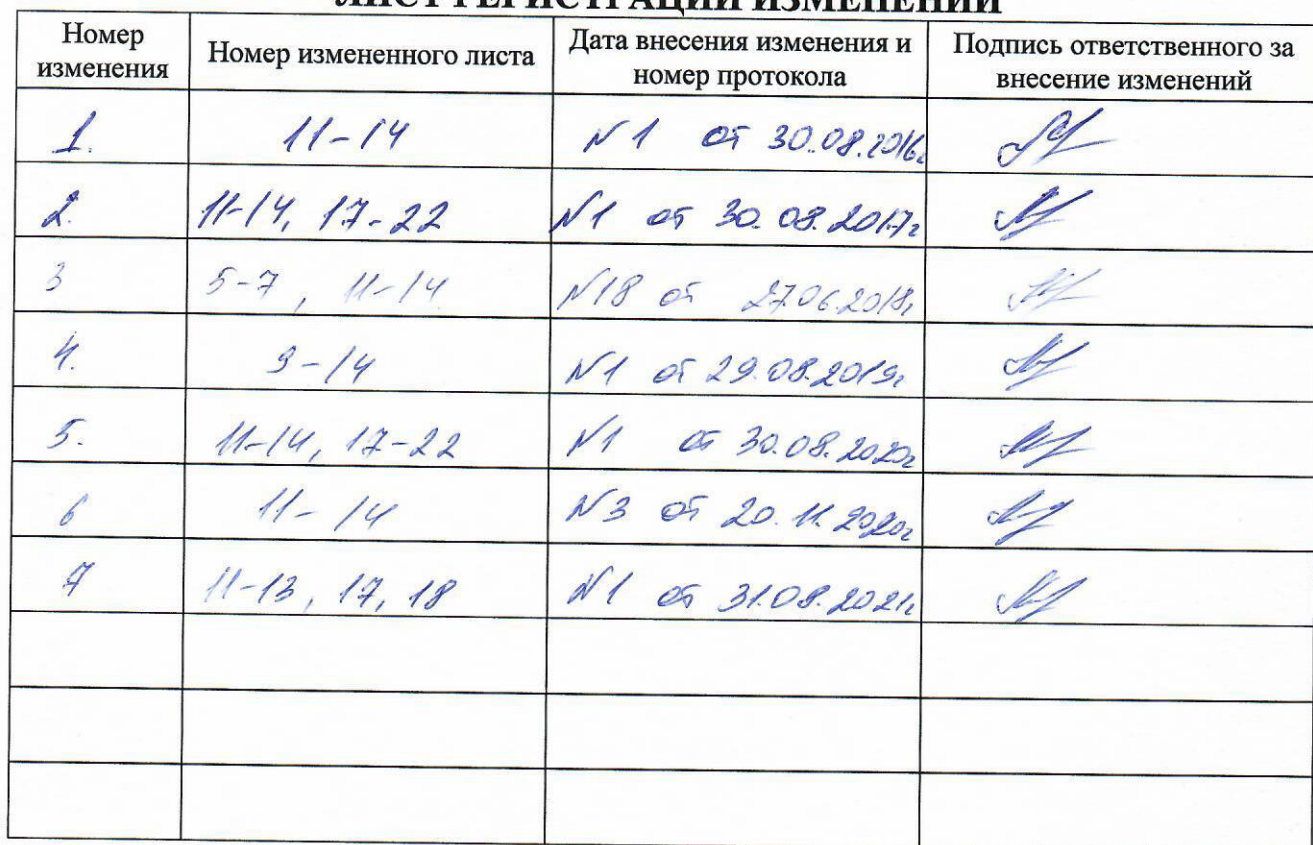 ЛИСТ РЕГИСТРАЦИИ ИЗМЕНЕНИЙ
Номер изменения Номер измененного листа Дата внесения изменения и номер протокола Подпись ответственного за внесение изменений
1. 11-14 №1 от 30.08.2016г
2. 11-14, 17-22 №1 от 30.08.2017г
3 5-7, 11-14 №18 от 27.06.2018г
4. 9-14 №1 от 29.08.2019г
5. 11-14, 17-22 №1 от 30.08.2020г
6 11-14 №3 от 20.11.2020г
7 11-13, 17, 18 №1 от 31.08.2021г